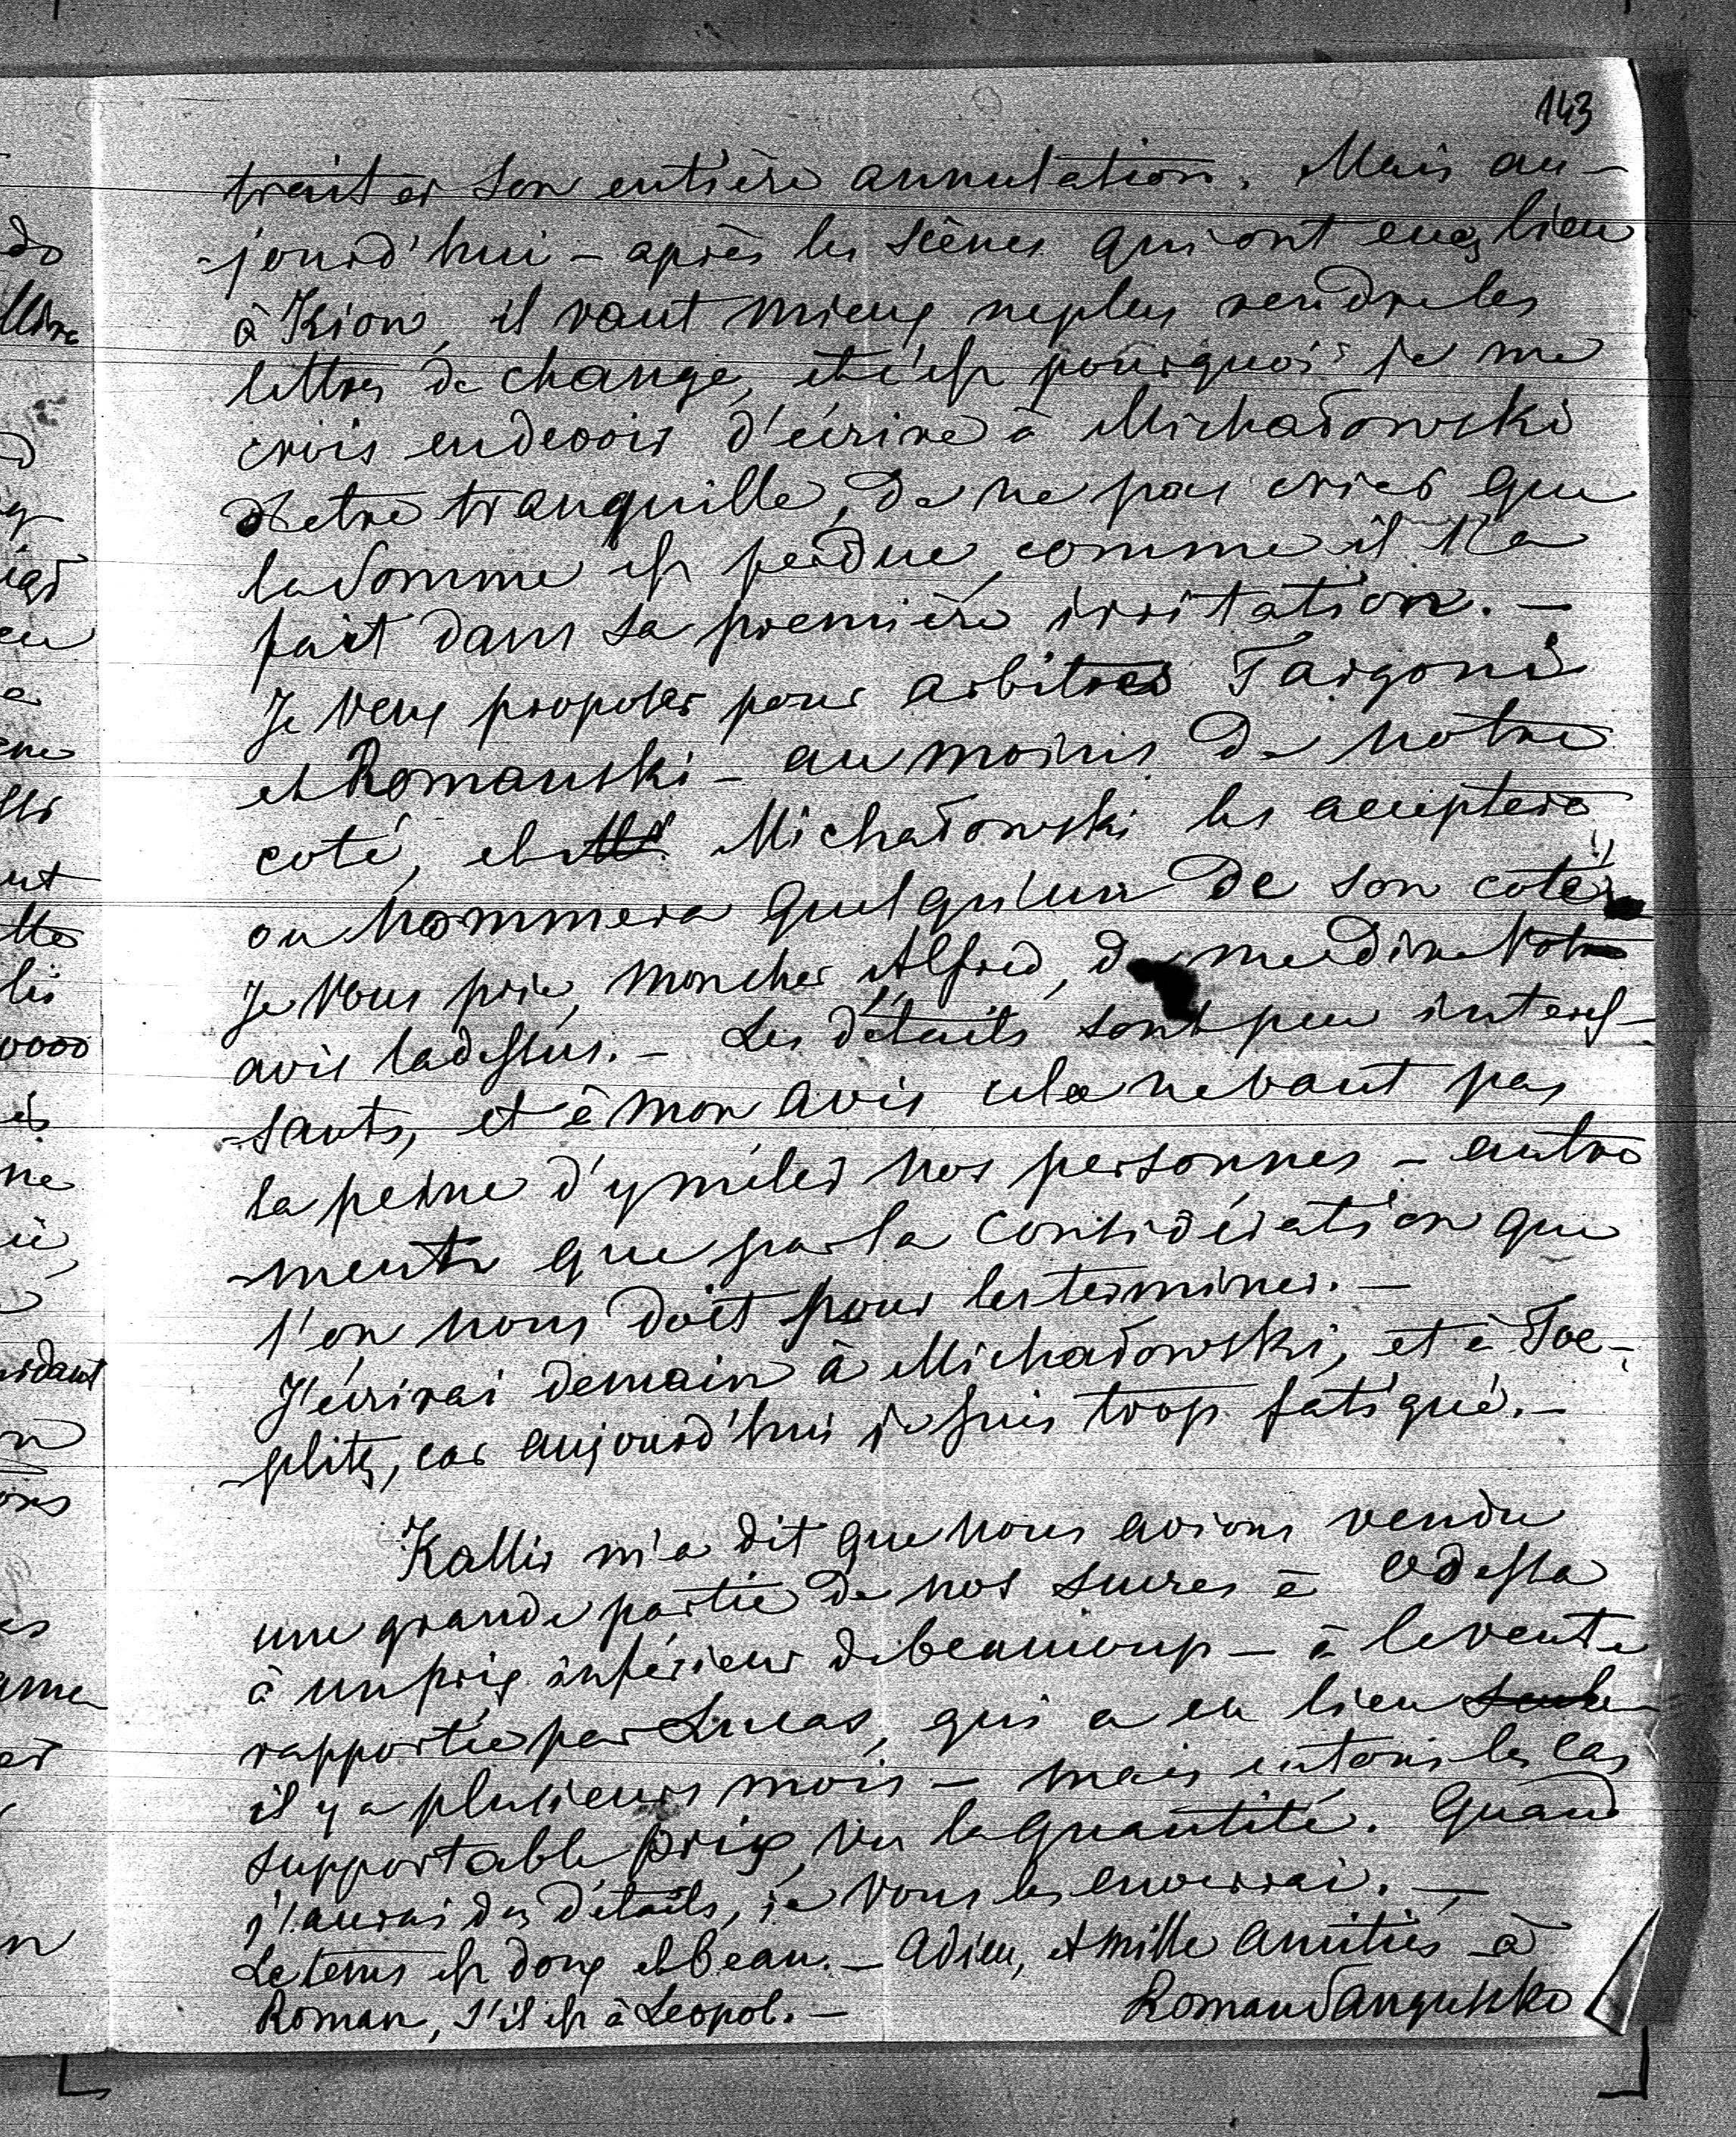 143
traiter son entière annulation. Mais au-
-jourd'hui - après les scènes qui ont eues lieu
à Kiow, il vaut mieux ne plus rendre les
lettres de change, et c'est pourquoi je me
crois en devoir d'écrire à Michałowski
d'etre tranquille, de ne pas crier que
la somme est perdue, comme il l'a
fait dans sa première irritation. —
Je veux proposer pour arbitres Targoni
et Romanski - au moins de notre
coté, et Michałowski les acceptera
ou nommera quelqu'un de son coté.
Je vous prie, mon cher Alfred, de me dire votre
avis ladessus. - Les détails sont peu interes-
-sants, et à mon avis cela ne vaut pas
la peine d'y mêler nos personnes - autre
-ment que par la considération que
l'on nous doit pour les terminer. —
J'écrirai demain à Michałowski, et à Toe-
-plitz, car aujourd'hui je suis trop fatigué. -
Kallir m'a dit que nous avions vendu
une grande partie de nos sucres à Odessa
à un prix inférieur de beaucoup - à la vente
rapportée par Lucas, qui a eu lieu seule
il y a plusieurs mois - mais en tous les cas
supportable prix, vu la quantité. Quand
j'aurai des détails, je vous les enverrai. —
Le tems est doux et beau. - Adieu, et mille amitiés à
Roman, s'il est à Leopol. —
Roman Sanguszko